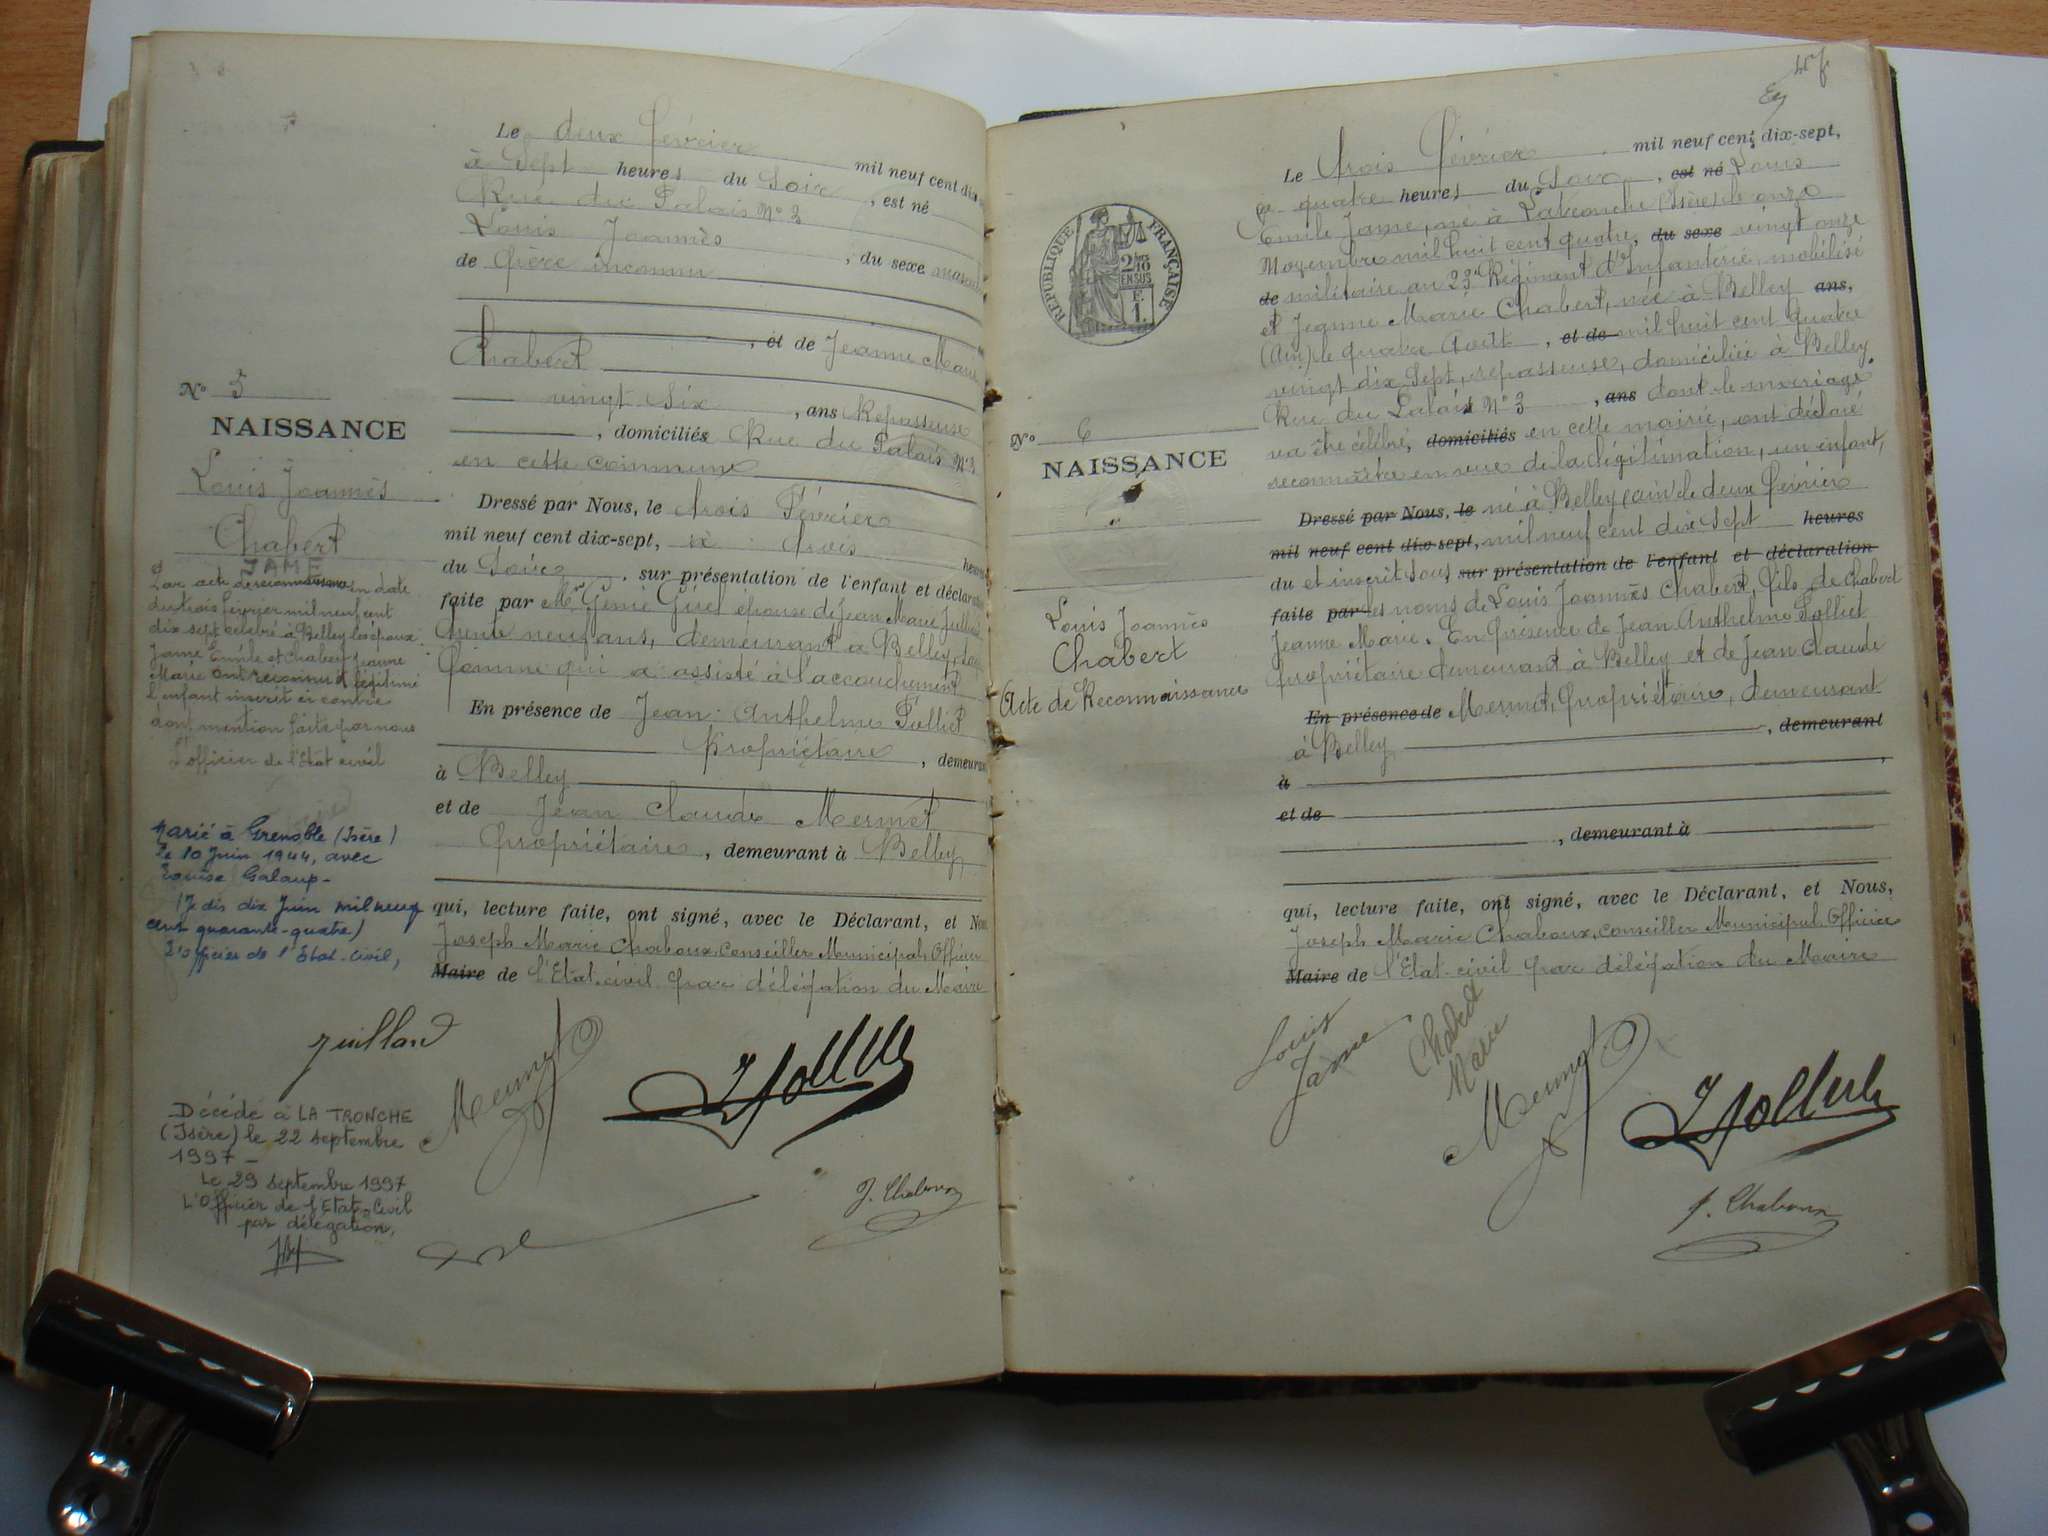 Le deux février mil neuf cent dix
à Sept heures du Soir, est né
Rue du Palais N° 3
Louis Joannès, du sexe mascu
de Père inconnu
, et de Jeanne Marie
Chabert
vingt six, ans Repasseuse
, domiciliés Rue du Palais N° 3
en cette commune
Dressé par Nous, le trois Février
mil neuf cent dix-sept, à trois heures
du Soir, sur présentation de l'enfant et déclaration
faite par Génie épouse de Jean Marie
trente neuf ans, demeurant à Belley
femme qui a assisté à l'accouchement
En présence de Jean Anthelme Tolliet
Propriétaire, demeurant
à Belley
et de Jean Claude Mermet
Propriétaire, demeurant à Belley
qui, lecture faite, ont signé, avec le Déclarant, et Nous
Joseph Marie Chaboux, Conseiller Municipal Officier
Maire de l'Etat-civil par délégation du Maire
N° 5
NAISSANCE
Louis Joannès
Chabert
JAME
Par acte de reconnaissance en date
du trois février mil neuf cent
dix sept célébré à Belley les époux
Jame Emile et Chabert Jeanne
Marie ont reconnu et légitimé
l'enfant inscrit ci contre
dont mention faite par nous
l'officier de l'Etat civil
Marié à Grenoble (Isère)
le 10 Juin 1944, avec
Louise Galaup-
(Je dis dix Juin mil neuf
cent quarante-quatre)
L'officier de l'Etat-civil,
Juilland
Mermet
J. Tolliet
J. Chaboux
Décédé à LA TRONCHE
(Isère) le 22 septembre
1997 -
Le 29 septembre 1997
L'Officier de l'Etat-Civil
par délégation,
Le trois Février mil neuf cent dix-sept,
à quatre heures du Soir, est né Louis
Emile Jame, né à Latronche (Isère) le onze
Novembre mil huit cent quatre, du sexe vingt onze
de militaire au 23e Régiment d'Infanterie, mobilisé
et Jeanne Marie Chabert, née à Belley ans,
(Ain) le quatre Août, et de mil huit cent quatre
vingt dix Sept, repasseuse, domiciliée à Belley
Rue du Palais N° 3, ans dont le mariage
va être célébré, domiciliés en cette mairie, ont déclaré
reconnaître en vue de la légitimation, un enfant,
Dressé par Nous, le né à Belley (ain) le deux février
mil neuf cent dix sept, mil neuf cent dix sept heures
du et inscrit sous, sur présentation de l'enfant et déclaration
faite par les noms de Louis Joannès Chabert, fils de Chabert
Jeanne Marie. En présence de Jean Anthelme Tolliet
propriétaire demeurant à Belley et de Jean Claude
En présence de Mermet, Propriétaire, demeurant
à Belley, demeurant
à
et de
, demeurant à
qui, lecture faite, ont signé, avec le Déclarant, et Nous,
Joseph Marie Chaboux, Conseiller Municipal Officier
Maire de l'Etat-civil par délégation du Maire
RÉPUBLIQUE FRANÇAISE
2/10
EN SUS
E
1.
N° 6
NAISSANCE
Louis Joannès
Chabert
Acte de Reconnaissance
Louis
Jame
Chabert
Marie
Mermet
J. Tolliet
J. Chaboux